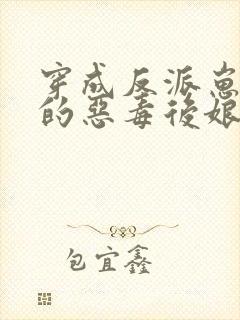 穿成反派崽
的惡毒後娘
包宜鑫